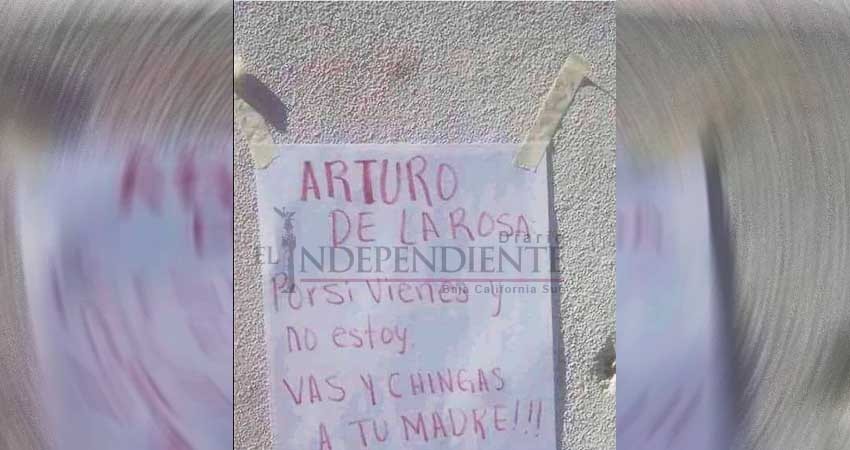 ARTURO
DE LA ROSA
Diario
EL INDEPENDIENTE
Baja California Sur
Por si vienes y
no estoy.
VAS Y CHINGAS
A TU MADRE!!!